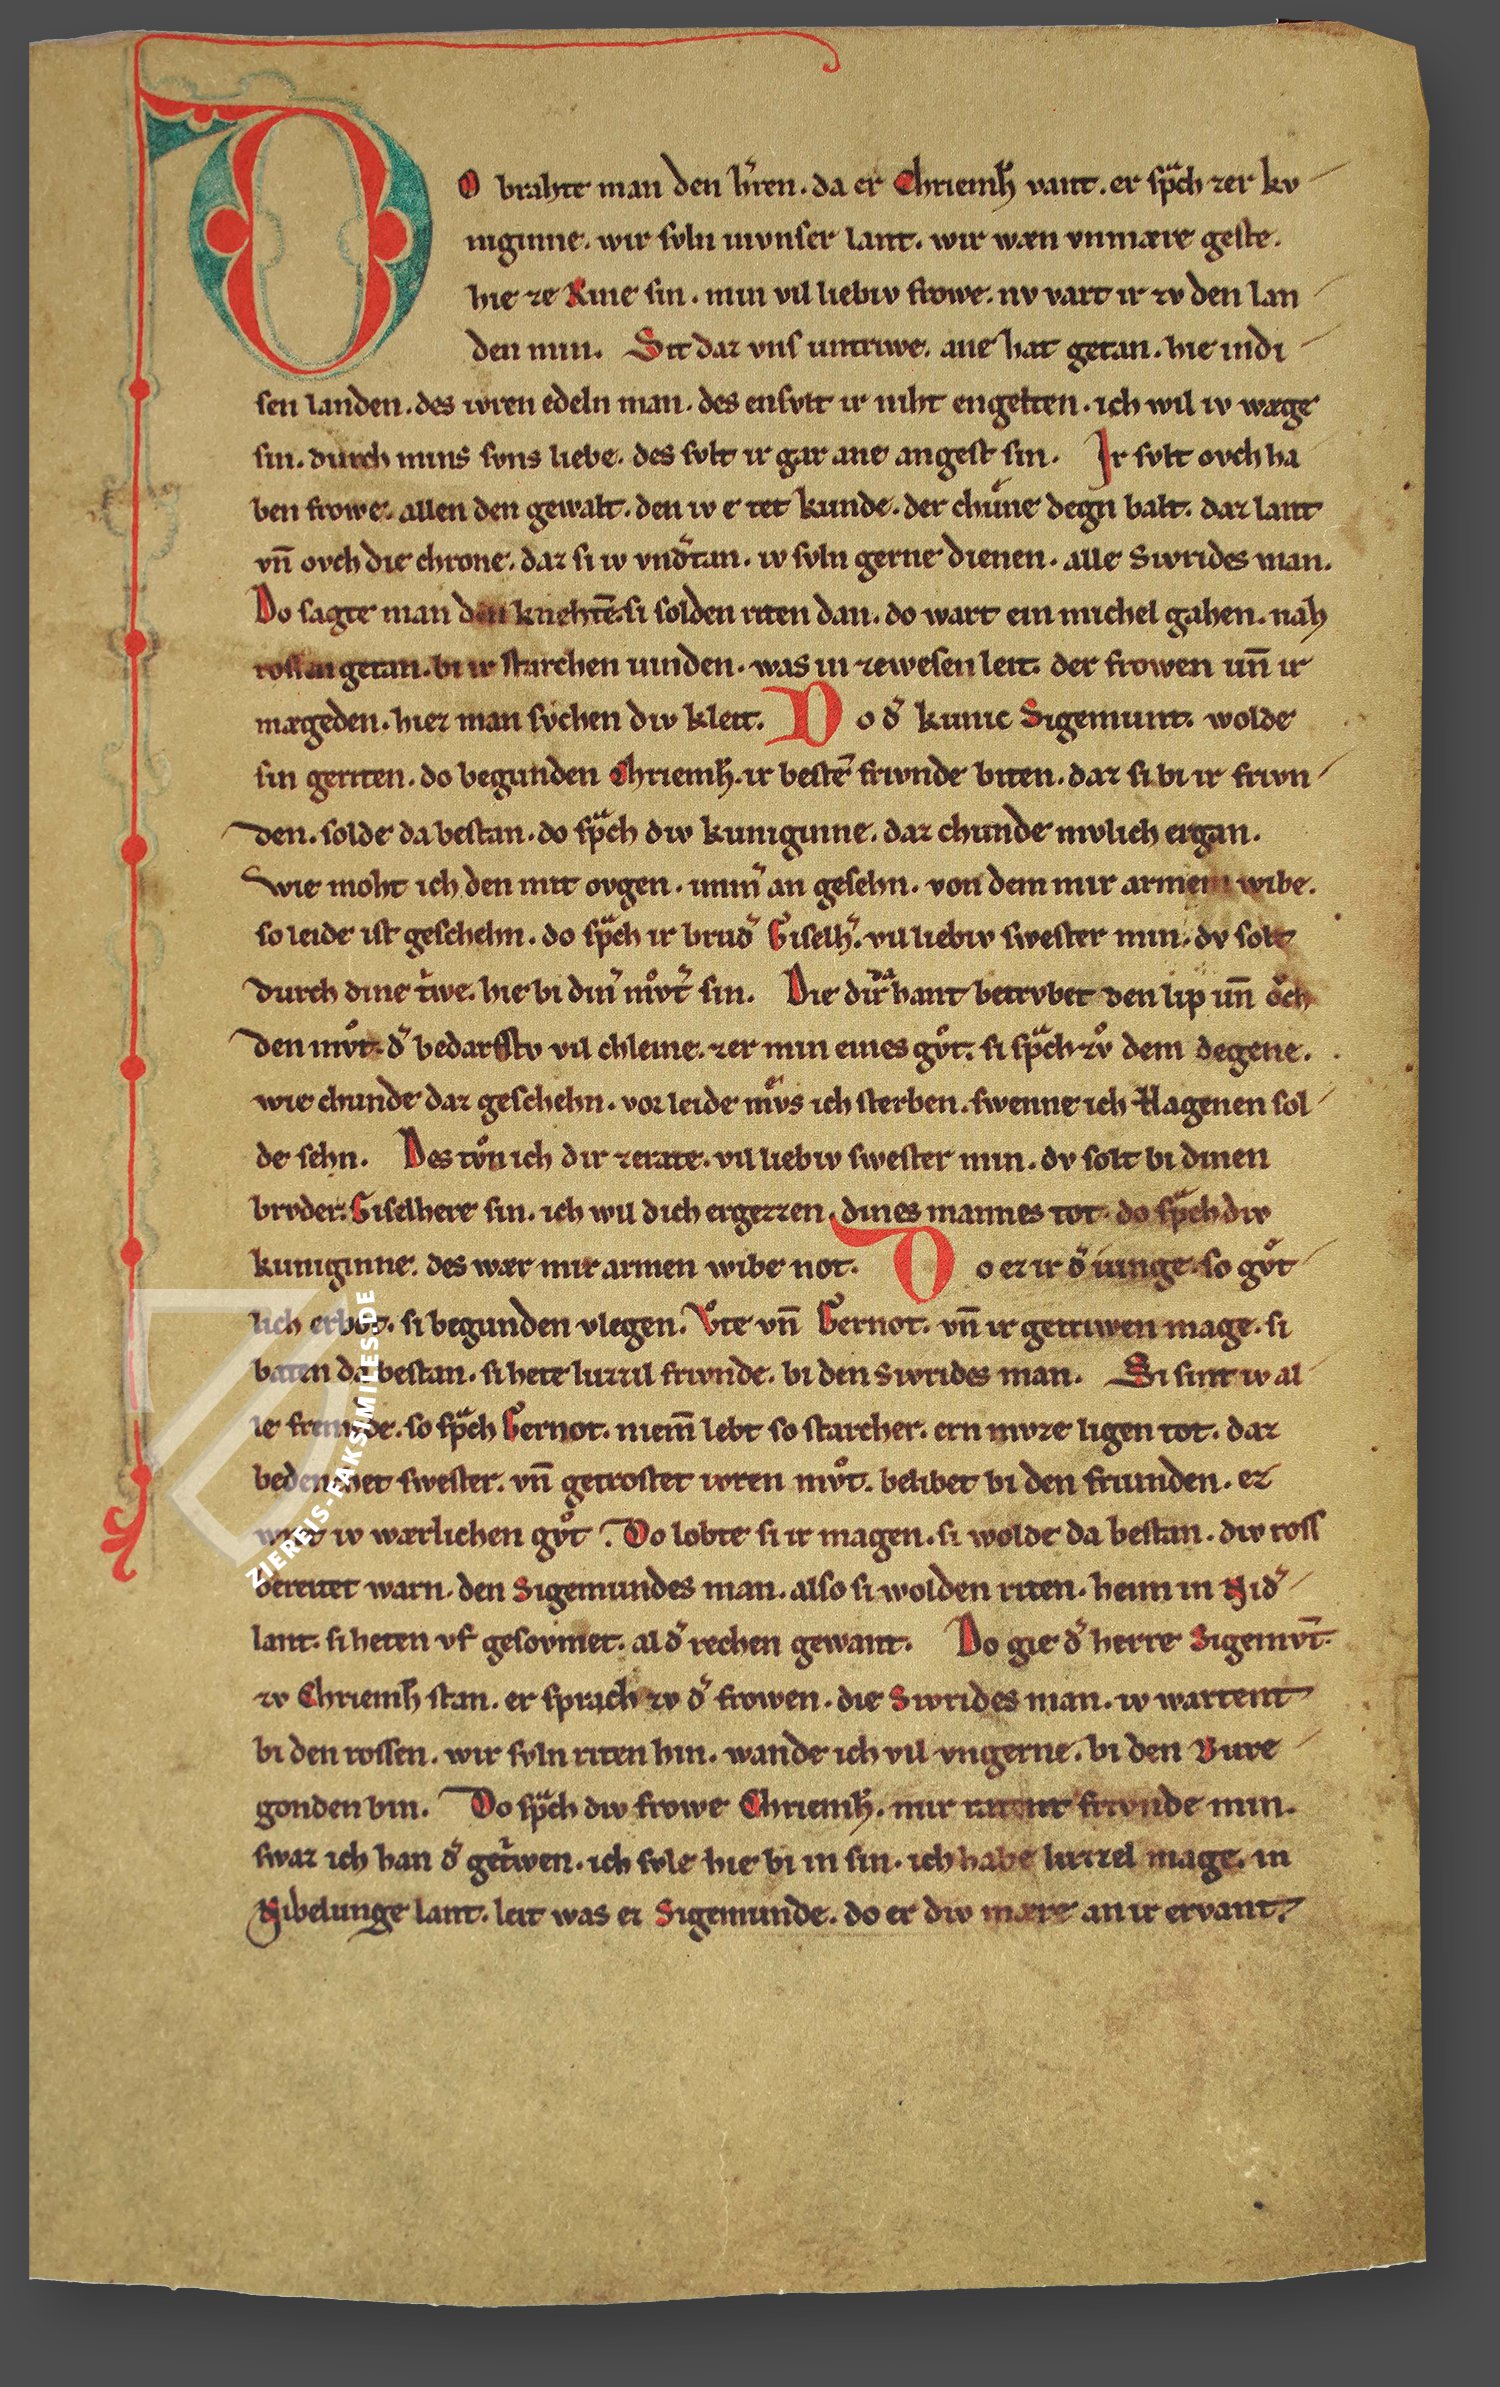 DO brahte man den h̾ren. da er Chriemh̄ vant. er sp̾ch zer kv
niginne. wir svln invnser lant. wir wæn vnmære geste.
hie ze Rine sin. min vil liebiv frowe. nv vart ir zv den lan
den min. Sit daz vns untriwe. ane hat getan. hie indi
sen landen. des iwren edeln man. des ensvlt ir niht engelten. ich wil iv wæge
sin. durch mins svns liebe. des svlt ir gar ane angest sin. Ir svlt ovch ha
ben frowe. allen den gewalt. den iv e tet kunde. der chuͤne degn balt. daz lant
vn̄ ovch die chrone. daz si iv vnd̾tan. iv svln gerne dienen. alle Sivrides man.
Do sagte man den knehtē. si solden riten dan. do wart ein michel gahen. nah
rossen getan. bi ir starchen uinden. was in zewesen leit. der frowen un̄ ir
mægeden. hiez man svchen div kleit. Do d̾ kunic Sigemunt. wolde
sin geriten. do begunden Chriemh̄. ir bestē frivnde biten. daz si bi ir frivn
den. solde da bestan. do sp̾ch div kuniginne. daz chunde mvlich ergan.
Wie moht ich den mit ovgen. imm̾ an gesehn. von dem mir armem wibe.
so leide ist geschehn. do sp̾ch ir brud̾ Giselh̾. vil liebiv swester min. dv solt
durch dine t̾we. hie bi din̾ mvͦt̾ sin. Die dir da hant betrvbet den lip un̄ oͮch
den mvͦt. d̾ bedarfstv vil chleine. zer min eines gvͦt. si sp̾ch zvͦ dem degene.
wie chunde daz geschehn. vor leide mvͤs ich sterben. swenne ich Hagenen sol
de sehn. Des tvͦn ich dir zerate. vil liebiv swester min. dv solt bi dinen
brvder. Giselhere sin. ich wil dich ergezzen. dines mannes tot. do sp̾ch div
kuniginne. des wær mir armen wibe not. Do ez ir d̾ iunge. so gvͦt
lich erbot. si begunden vlegen. Vͦte vn̄ Gernot. vn̄ ir getriwen mage. si
baten da bestan. si hete luzzil frivnde. bi den Sivrides man. Si sint iv al
le fremde. so sp̾ch Gernot. niem̄ lebt so starcher. ern mvze ligen tot. daz
bedenchet swester. vn̄ getrostet ivren mvͦt. belibet bi den friunden. ez
wirt iv wærlichen gvͦt. Do lobte si ir magen. si wolde da bestan. div ross
bereitet warn. den Sigemundes man. also si wolden riten. heim in Nid̾
lant. si heten vf gesovmet. al d̾ rechen gewant. Do gie d̾ herre Sigemvn̄t.
zv Chriemh̄ stan. er sprach zv d̾ frowen. die Sivrides man. iv wartent
bi den rossen. wir svln riten hin. wande ich vil vngerne. bi den Bure
gonden bin. Do sp̾ch div frowe Chriemh̄. mir ratent frivnde min.
swaz ich han d̾ get̾wen. ich svle hie bi in sin. ich habe luzzel mage. in
Nibelunge lant. leit was ez Sigemunde. do er div mære an ir ervant.
ZIEREIS-FAKSIMILES.DE